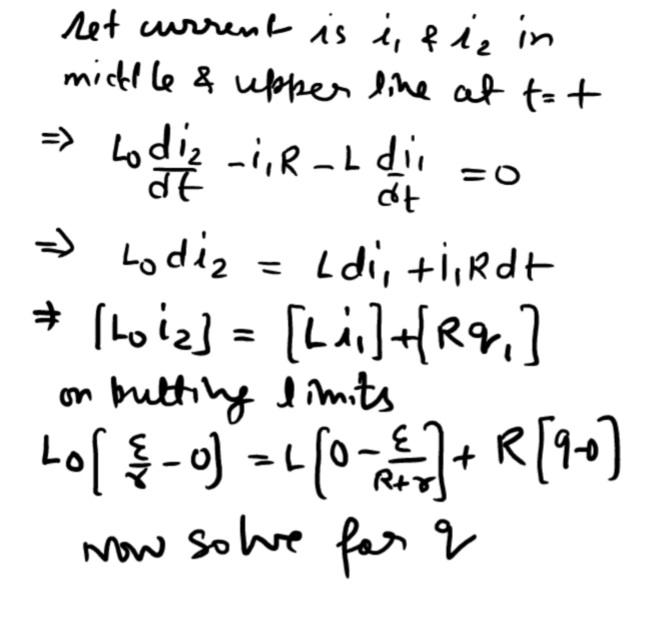 Let current is i₁ & i₂ in
middle & upper line at t=t
⇒ L₀ di₂/dt - i₁R - L di₁/dt = 0
⇒ L₀di₂ = Ldi₁ + i₁Rdt
⇒ [L₀i₂] = [Li₁]+[Rq₁]
on putting limits
L₀[ε/r - 0] = L[0 - ε/R+r] + R[q-0]
Now solve for q